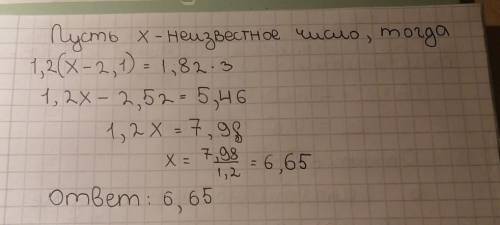 Пусть х-неизвестное число, тогда
1,2(х-2,1)=1,82·3
1,2х-2,52=5,46
1,2х=7,98
х=7,98/1,2=6,65
Ответ: 6,65